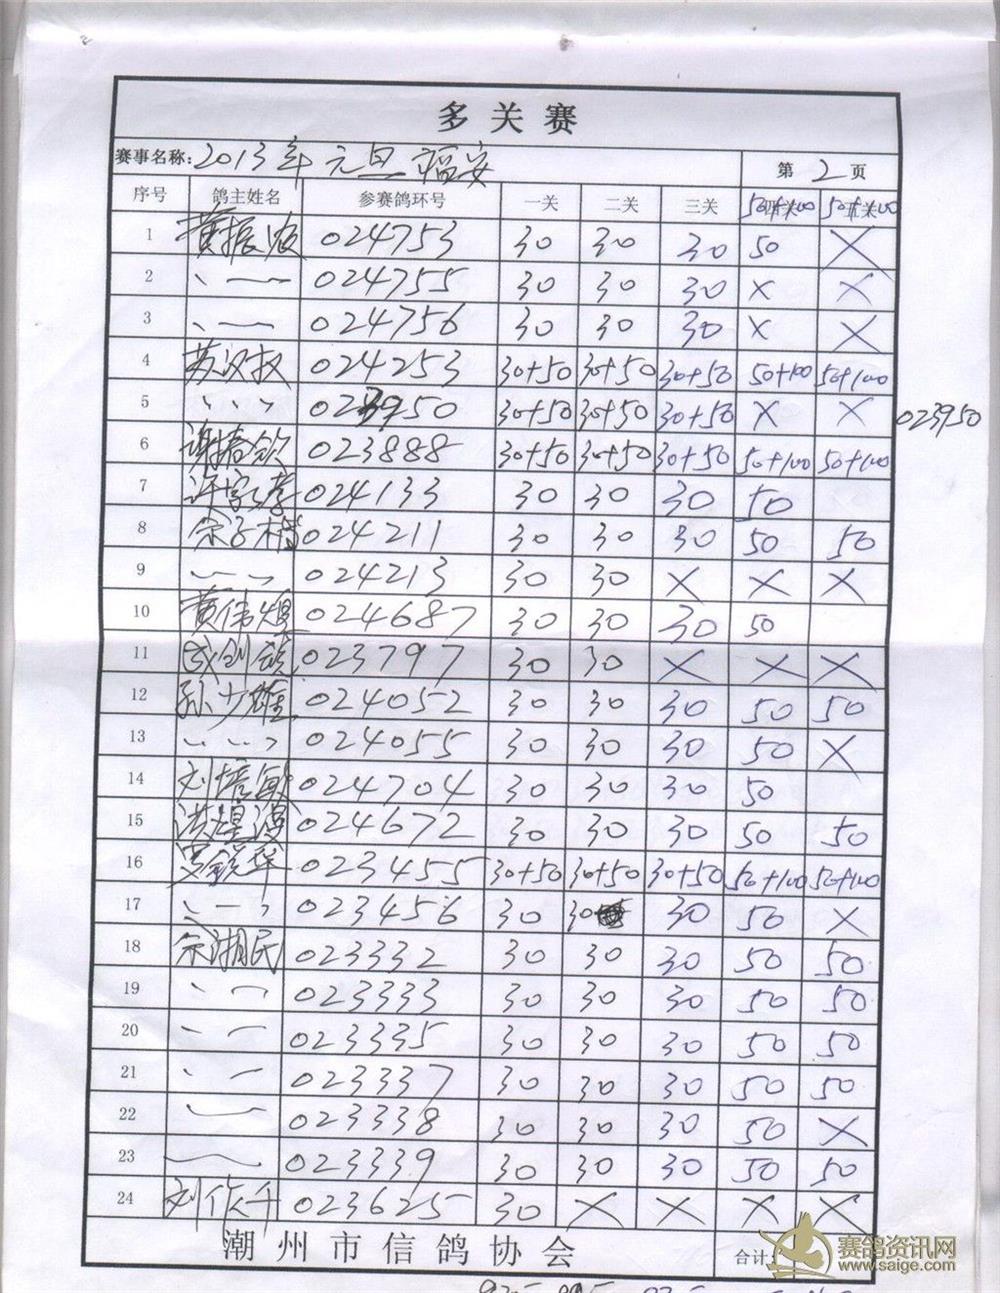 多关赛
赛事名称: 2013年元旦福安 第 2 页
序号 鸽主姓名 参赛鸽环号 一关 二关 三关 四关 50+100 五关 50+100
1 黄振农 024753 30 30 30 50 X
2 024755 30 30 30 X X
3 024756 30 30 30 X X
4 苏汉权 024253 30+50 30+50 30+50 50+100 50+100
5 023950 30+50 30+50 30+50 X X 023950
6 谢春欽 023888 30+50 30+50 30+50 50+100 50+100
7 024133 30 30 30 50
8 024211 30 30 30 50 50
9 024213 30 30 X X X
10 黄伟煜 024687 30 30 30 50
11 023797 30 30 X X X
12 孙少雄 024052 30 30 30 50 50
13 024055 30 30 30 50 X
14 刘培敏 024704 30 30 30 50
15 024672 30 30 30 50 50
16 023455 30+50 30+50 30+50 50+100 50+100
17 023456 30 30 30 50 X
18 余湘民 023332 30 30 30 50 50
19 023333 30 30 30 50 50
20 023335 30 30 30 50 50
21 023337 30 30 30 50 50
22 023338 30 30 30 50 X
23 023339 30 30 30 50 50
24 023625 30 X X X X
潮州市信鸽协会 合计
赛鸽资讯网
www.saige.com